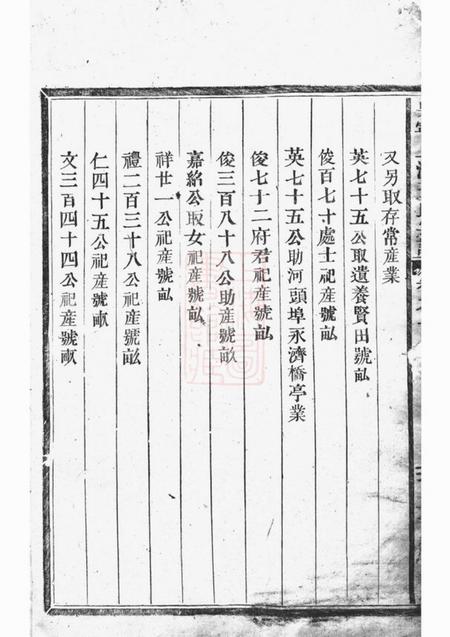 又另取存常産業
英七十五公取遺養賢田號畆
俊百七十處士祀産號畆
英七十五公助河頭埠永濟橋亭業
俊七十二府君祀産號畆
俊三百八十八公助産號畝
嘉紹公取女祀産號畆
祥廿一公祀産號畆
禮二百三十八公祀産號畝
仁四十五公祀産號畒
文三百四十四公祀産號畒